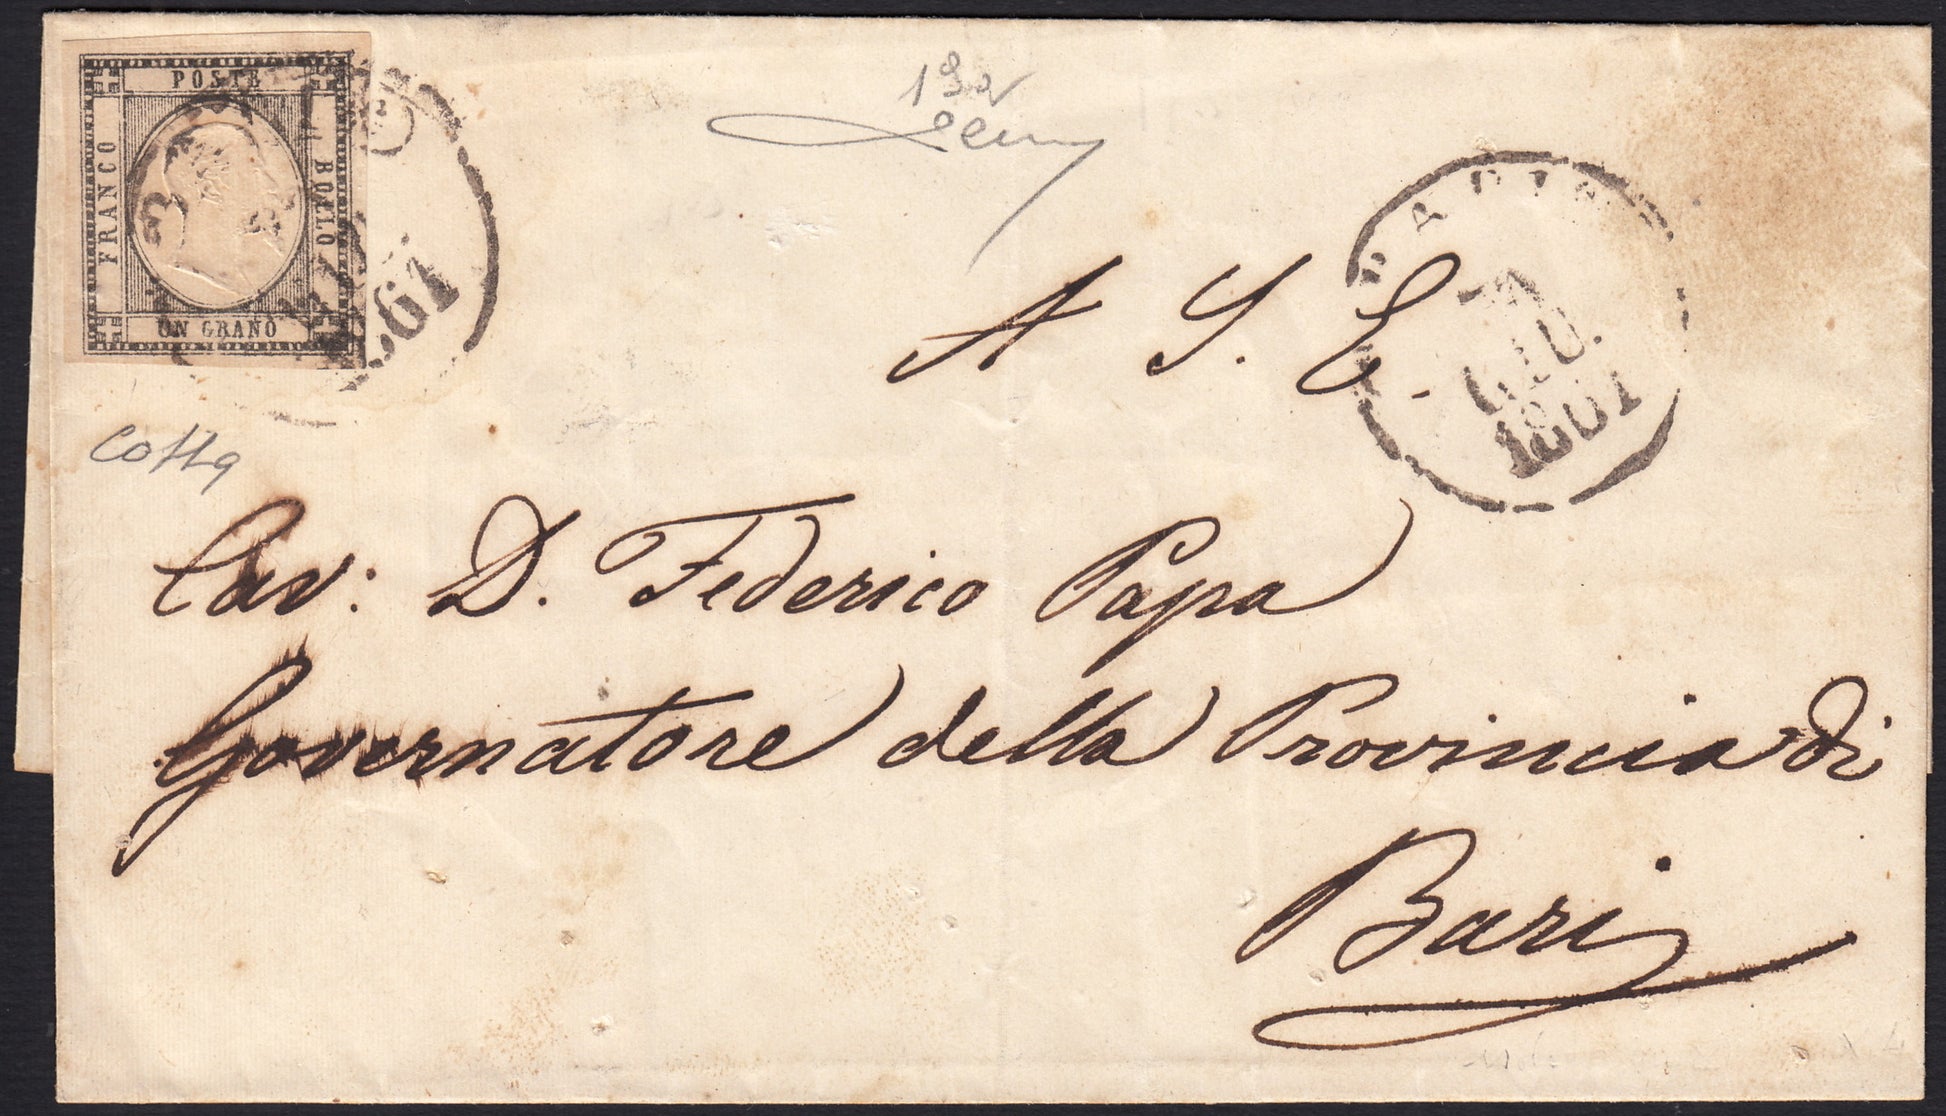 POSTE
FRANCO
BOLLO
UN GRANO
1861
A S. E.
GIU.
1861
Cav: D. Federico Papa
Governatore della Provincia di
Bari